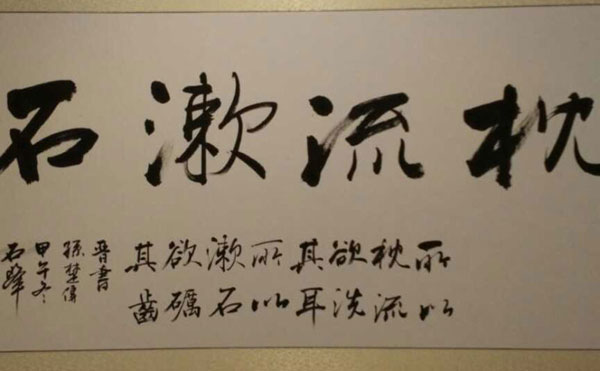 枕流漱石
所以
枕流
欲洗
其耳
所以
漱石
欲礪
其齒
晋書
孫楚傳
甲午冬
石峰